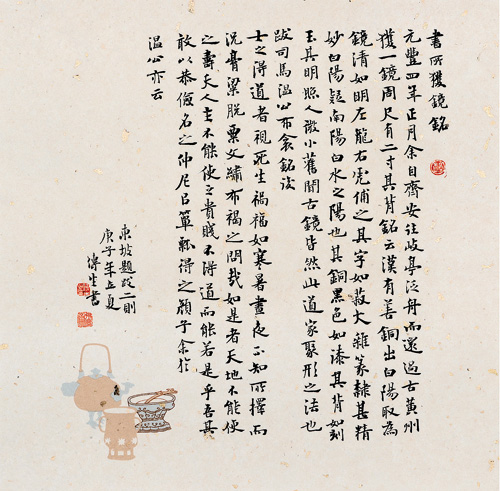 書所獲鏡銘
元豐四年正月余自齊安往岐亭泛舟而還過古黄州
獲一鏡周尺有二寸其背銘云漢有善銅出白陽取為
鏡清如明左龍右虎俌之其字如菽大雜篆隸甚精
妙白陽疑南陽白水之陽也其銅黑色如漆其背如刻
玉其明照人微小舊聞古鏡皆然此道家聚形之法也
跋司馬溫公布衾銘後
士之得道者視死生禍福如寒暑晝夜不知所擇而
況膏粱脱粟文繡布褐之間哉如是者天地不能使
之壽夭人主不能使之貴賤不得道而能若是乎吾其
敢以恭儉名之仲尼㠯簞瓢得之顏子余於
溫公亦云
東坡題跋二則
庚子年立夏
傳生書